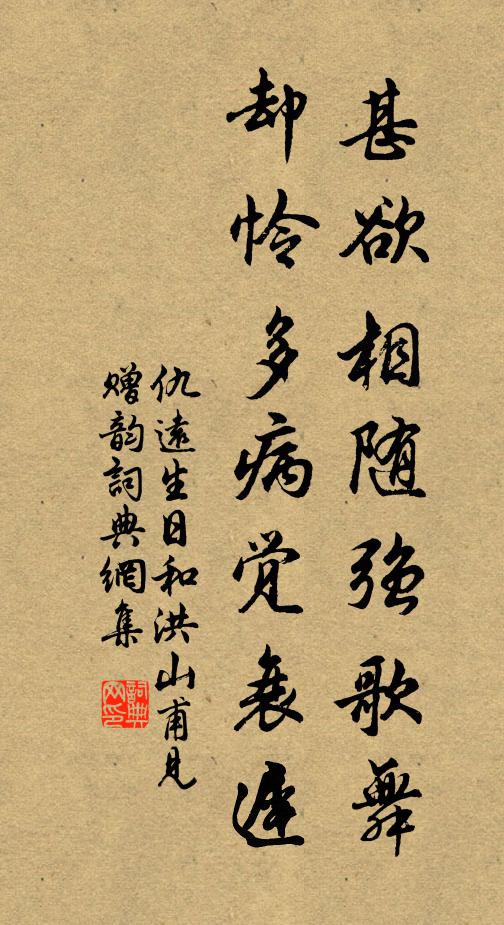 甚欲相随强歌舞
却怜多病觉衰遲
仇遠生日和洪山甫見
赠韵詞典網集
詞典网印